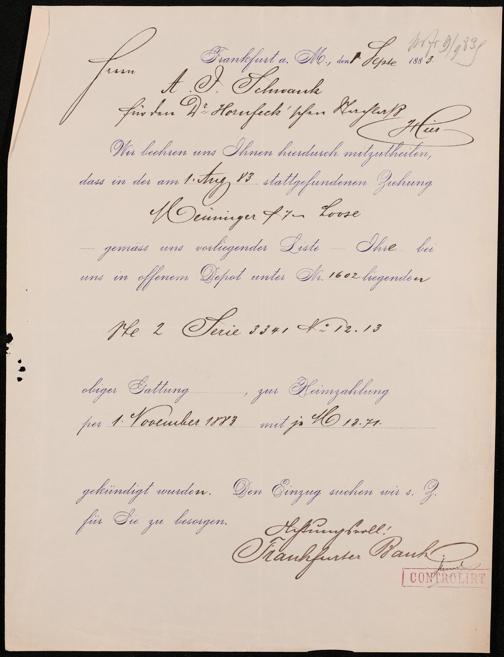 Frankfurt a. M., den 1 Septe 1883.
Herrn
A. F. Schwank
für den Dr. Hornfeck'schen Nachlaß
Hier
Wir beehren uns Ihnen hierdurch mitzutheilen,
dass in der am 1. Aug. 83 stattgefundenen Ziehung
Meininger f 7 Loose
gemäss uns vorliegender Liste Ihre bei
uns in offenem Depot unter Nr. 1602 liegenden
Ste 2 Serie 3341 No 12.13
obiger Gattung, zur Heimzahlung
per 1. November 1883 mit je M 13.71.
gekündigt wurden. Den Einzug suchen wir s. Z.
für Sie zu besorgen.
Achtungsvoll!
Frankfurter Bank
CONTROLIRT